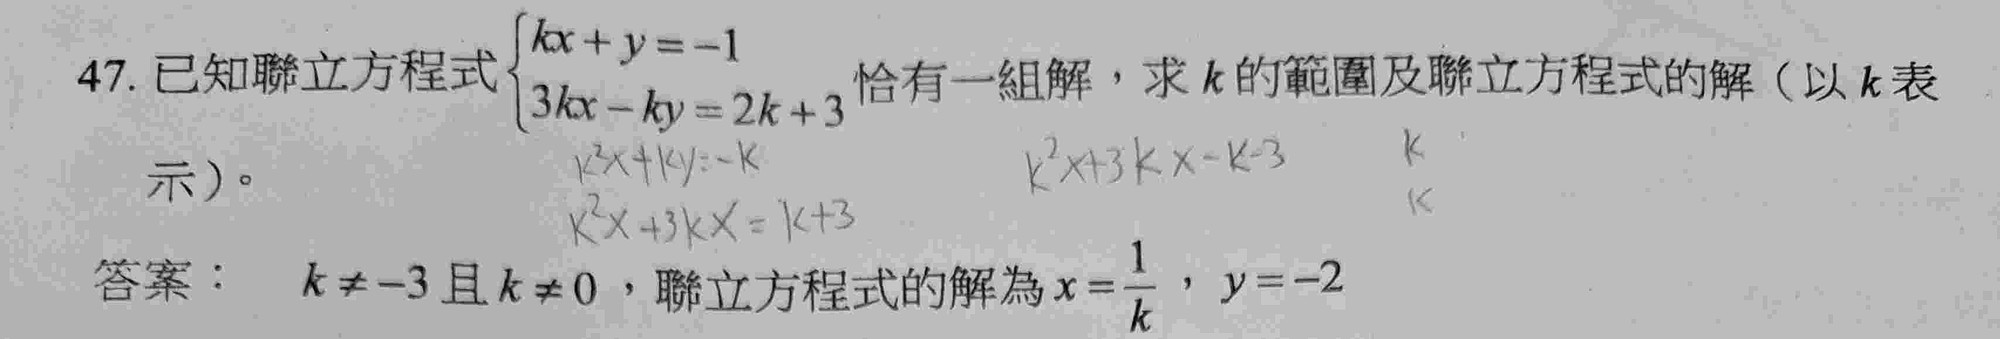 47. 已知聯立方程式{kx + y = −1 恰有一組解，求 k 的範圍及聯立方程式的解（以 k 表
3kx − ky = 2k + 3
示）。
k²x+ky=-k k²x+3kx-k-3 k
k²x+3kx=k+3 k
答案： k ≠ −3 且 k ≠ 0，聯立方程式的解為 x = 1/k ， y = −2